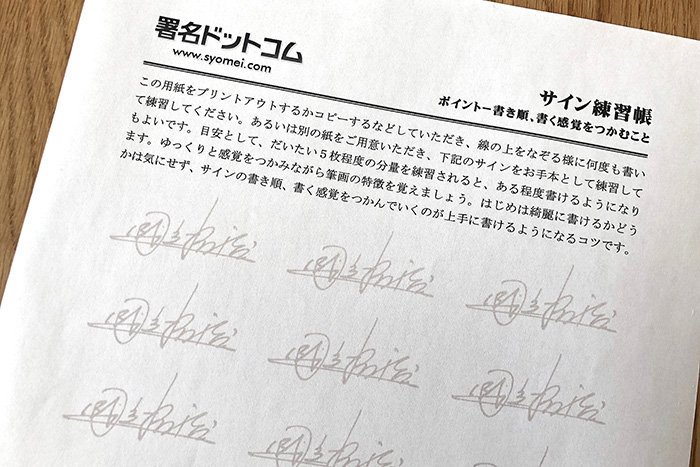 署名ドットコム
www.syomei.com
サイン練習帳
ポイントー書き順、書く感覚をつかむこと
この用紙をプリントアウトするかコピーするなどしていただき、線の上をなぞる様に何度も書い
て練習してください。あるいは別の紙をご用意いただき、下記のサインをお手本として練習して
もよいです。目安として、だいたい5枚程度の分量を練習されると、ある程度書けるようになり
ます。ゆっくりと感覚をつかみながら筆画の特徴を覚えましょう。はじめは綺麗に書けるかどう
かは気にせず、サインの書き順、書く感覚をつかんでいくのが上手に書けるようになるコツです。